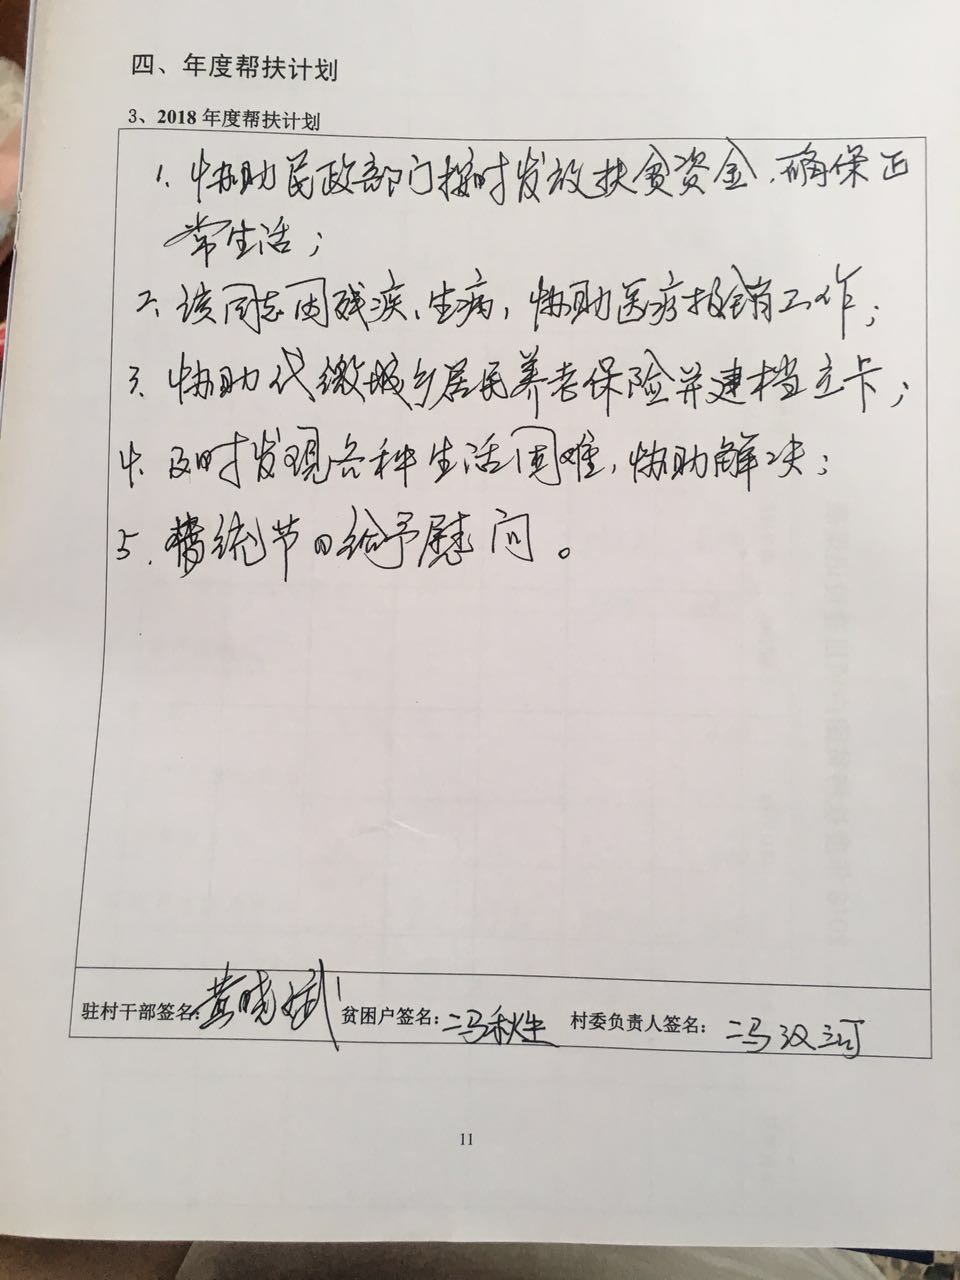 四、年度帮扶计划
3、2018 年度帮扶计划
1. 协助民政部门按时发放扶贫资金,确保正
常生活;
2. 该同志因残疾、生病,协助医疗报销工作;
3. 协助代缴城乡居民养老保险并建档立卡;
4. 及时发现各种生活困难,协助解决;
5. 传统节日给予慰问。
驻村干部签名:黄晓斌 贫困户签名:冯秋生 村委负责人签名:冯汉河
11